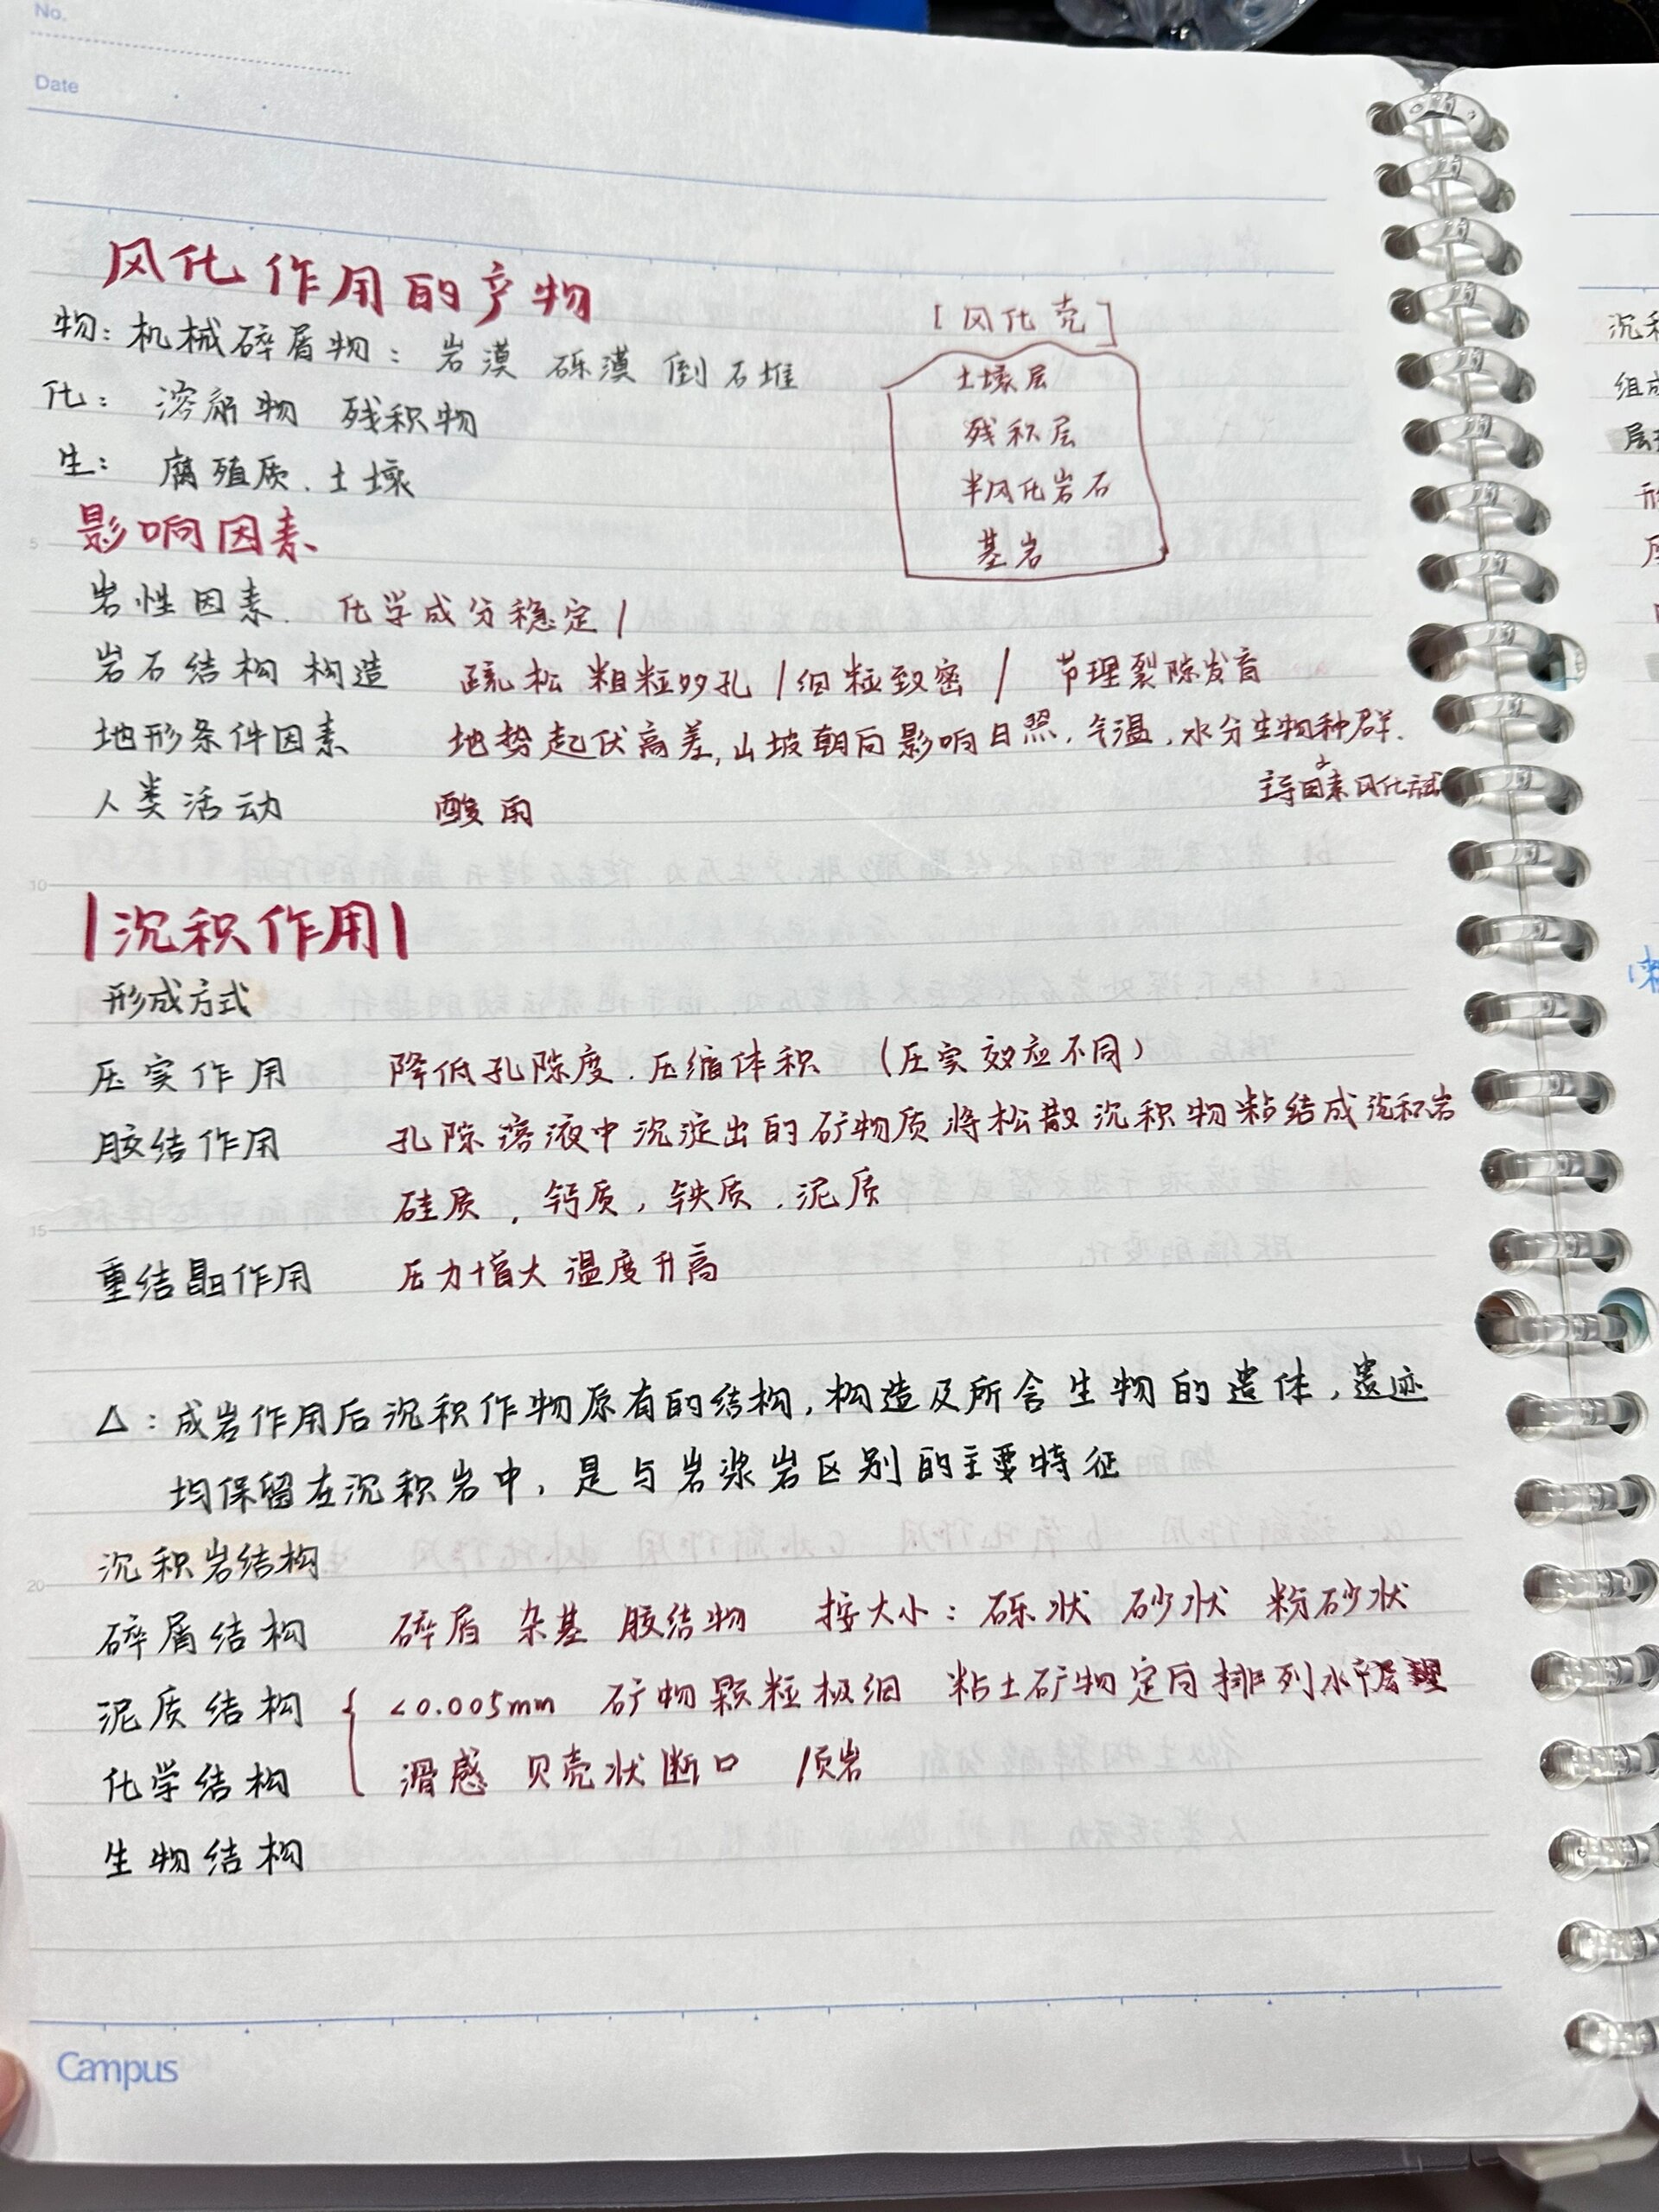 No.
Date
风化作用的产物
物：机械碎屑物：岩漠 砾漠 倒石堆
化：溶解物 残积物
生：腐殖质、土壤
[风化壳]
土壤层
残积层
半风化岩石
基岩
影响因素
岩性因素. 化学成分稳定/
岩石结构构造 疏松 粗粒多孔/细粒致密/ 节理裂隙发育
地形条件因素 地势起伏高差,山坡朝向影响日照,气温,水分生物种群.
主导因素风化
人类活动 酸雨
|沉积作用|
形成方式
压实作用 降低孔隙度.压缩体积 （压实效应不同）
胶结作用 孔隙溶液中沉淀出的矿物质将松散沉积物粘结成沉积岩
硅质,钙质,铁质.泥质
重结晶作用 压力增大 温度升高
△：成岩作用后沉积作物原有的结构,构造及所含生物的遗体,遗迹
均保留在沉积岩中,是与岩浆岩区别的主要特征
沉积岩结构
碎屑结构 碎屑 杂基 胶结物 按大小：砾状 砂状 粉砂状
泥质结构 <0.005mm 矿物颗粒极细 粘土矿物定向排列水平层理
化学结构 滑感 贝壳状断口 /页岩
生物结构
5
10
15
20
Campus
沉积
组成